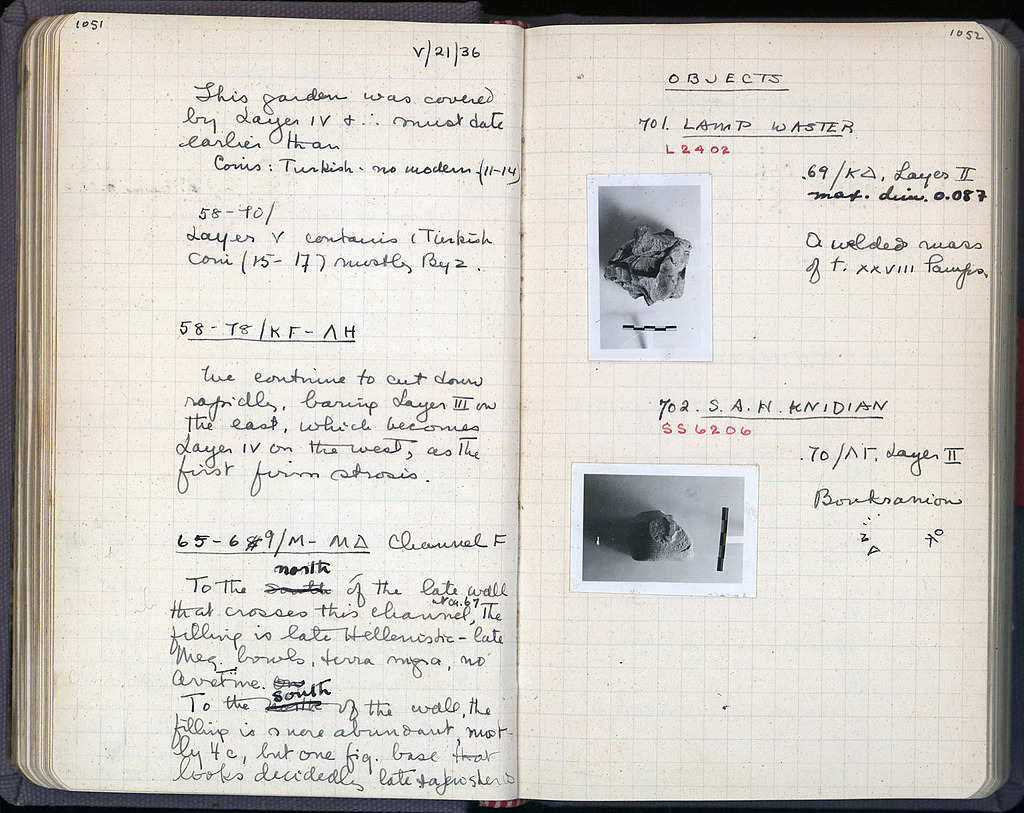 1051
V/21/36
This garden was covered
by Layer IV & ∴ must date
earlier than
Coins: Turkish - no modern (11-14)
58-70/
Layer V contains 1 Turkish
coin (15-17) mostly Byz.
58-78/ΚΓ-ΛΗ
We continue to cut down
rapidly, baring Layer III on
the east, which becomes
Layer IV on the west, as the
first firm strosis.
65-69/Μ-ΜΔ Channel F
north
To the south of the late wall
No. 67
that crosses this channel, the
filling is late Hellenistic - late
Meg. bowls, terra nigra, no
Avetine.
south
To the north of the wall, the
filling is more abundant, most-
ly 4c, but one fig. base that
looks decidedly late
1052
OBJECTS
701. LAMP WASTER
L 2402
69/ΚΔ, Layer II
max. dim. 0.087
A welded mass
of t. XXVIII lamps.
702. S.A.H. KNIDIAN
SS 6206
70/ΛΓ, Layer II
Boukranion